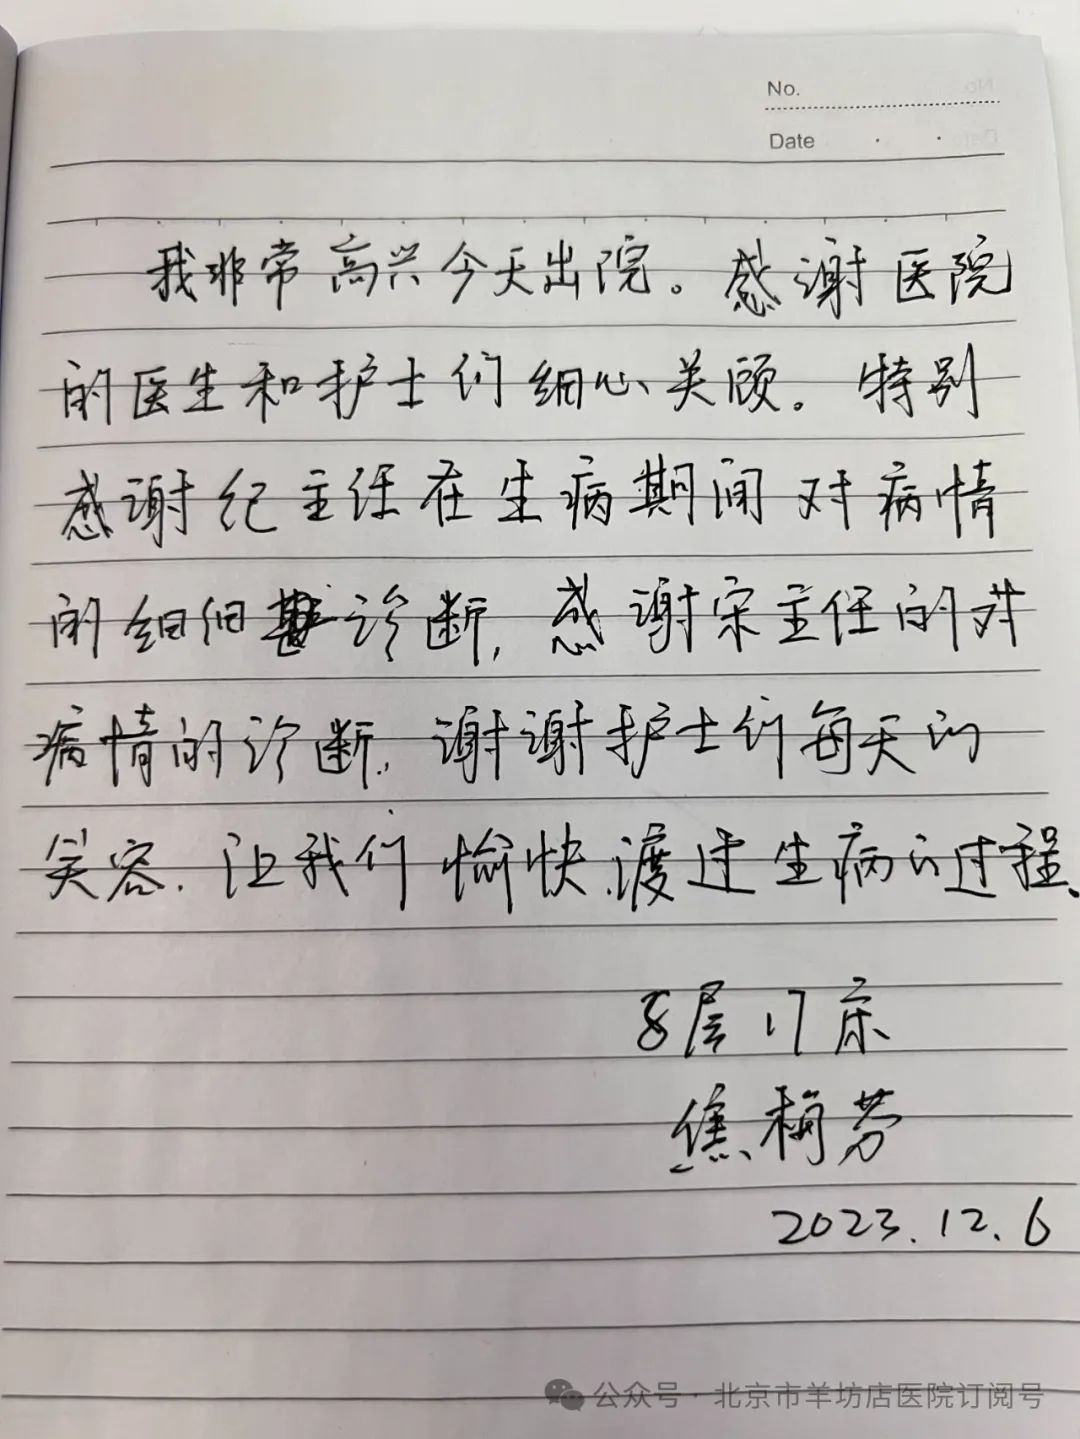 No.
Date
我非常高兴今天出院。感谢医院
的医生和护士们细心关顾。特别
感谢纪主任在生病期间对病情
的细细诊断,感谢宋主任的对
病情的诊断,谢谢护士们每天的
笑容.让我们愉快渡过生病的过程、
8层17床
焦梅芬
2023.12.6
公众号·北京市羊坊店医院订阅号